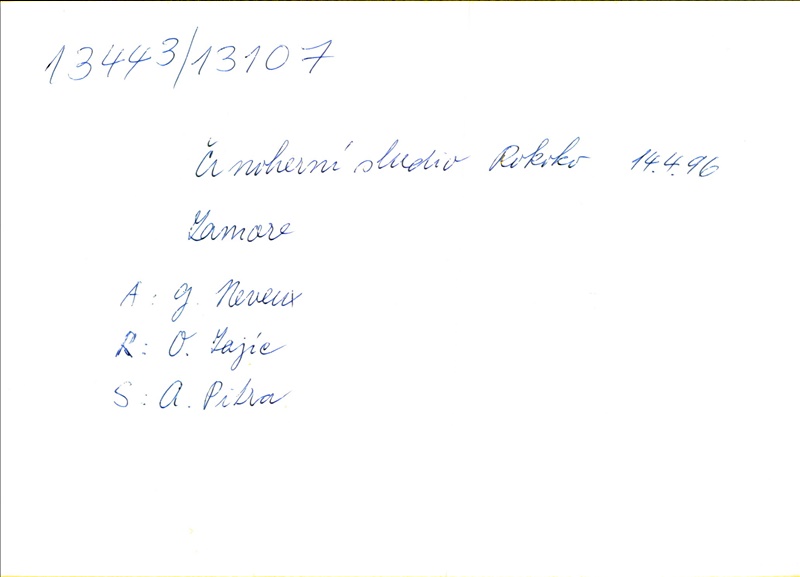 13443/13107
Činoherní studio Rokoko 14.4.96
Zamore
A: G. Neveux
R: O. Zajíc
S: A. Pitra